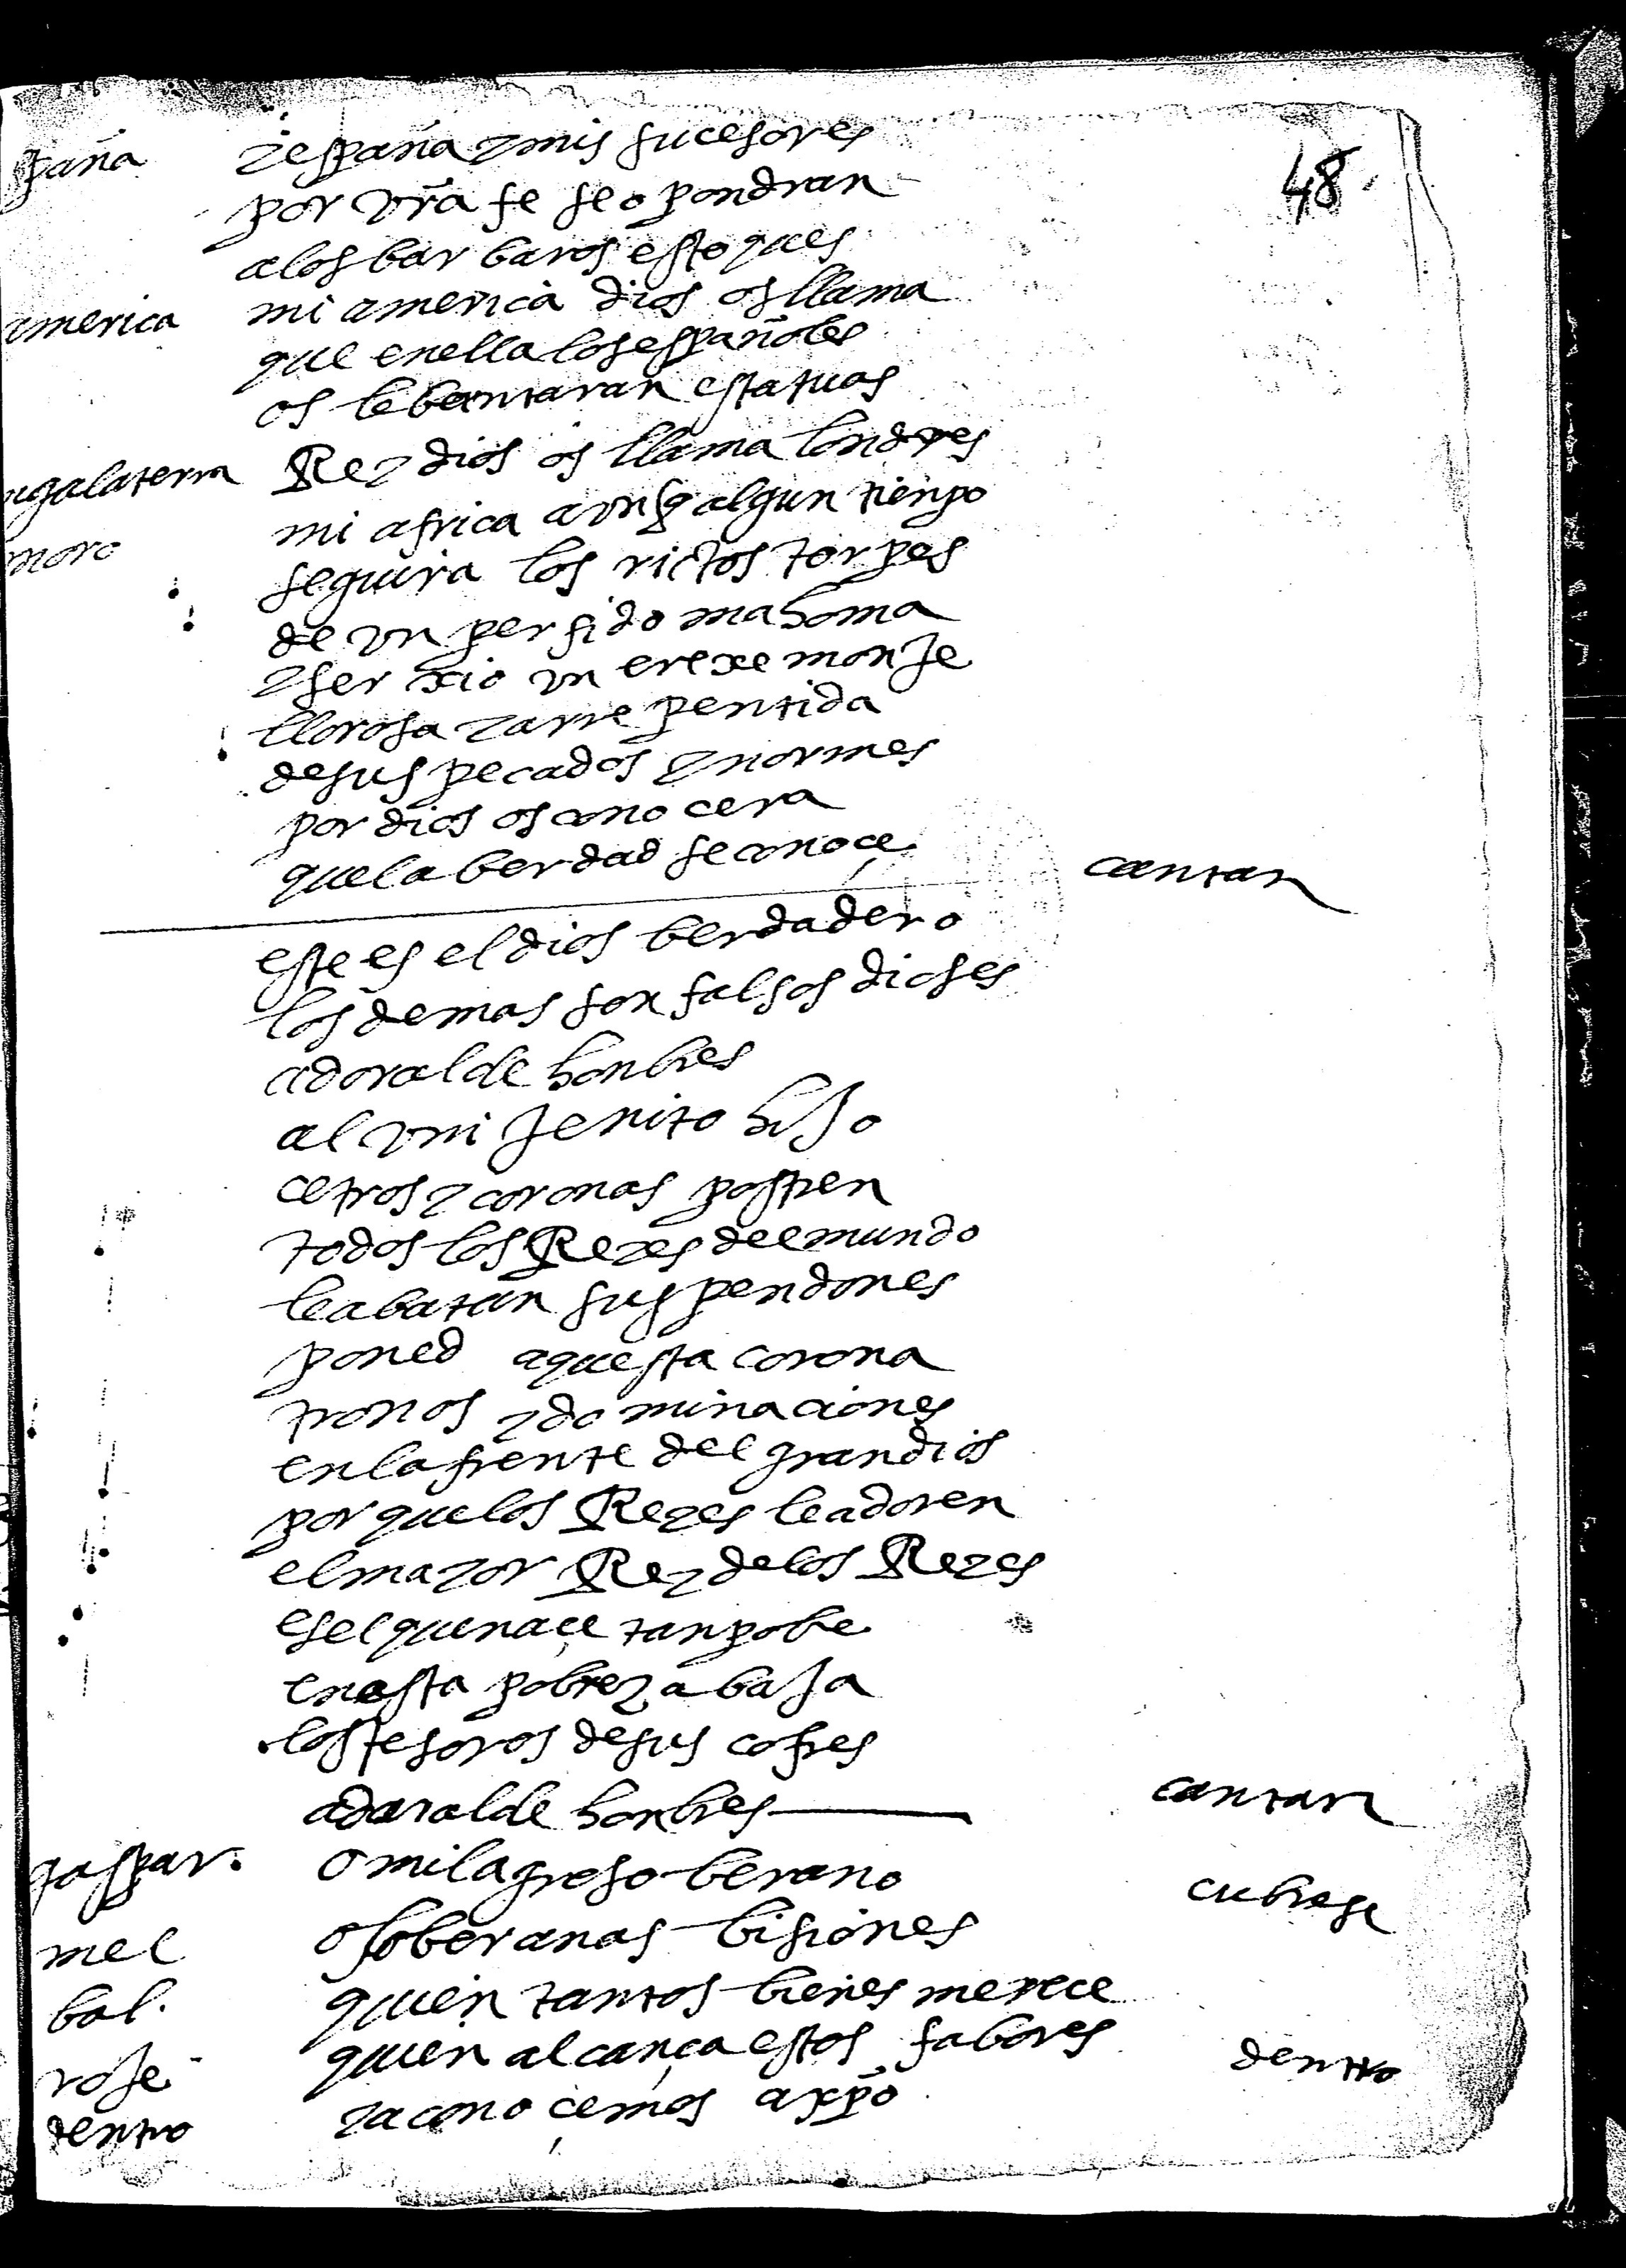 48
paña yespaña y mis sucesores
por vrã fe se opondran
a los barbaros estoques
america mi america dios os llama
que en ella los españoles
os lebantaran estatuas
ngalaterra Rey dios os llama londres
moro mi africa avnq algun tienpo
seguira los rictos torpes
de vn perfido mahoma
y serxio vn erexe monje
llorosa y arrepentida
de sus pecados ynormes
por dios os conocera
que la berdad se conoce cantan
este es el dios berdadero
los demas son falsos dioses
adoralde honbres
al vnijenito hijo
cetros y coronas postren
todos los Reyes del mundo
le abatan sus pendones
poned aquesta corona
tronos y dominaciones
en la frente del gran dios
por que los Reyes le adoren
el mayor Rey de los Reyes
es el que naçe tan pobe
en esta pobreza baja
los tesoros de sus cofres
adoralde honbres cantan
gaspar. o milagroso berano cubrese
mel o soberanas bisiones
bal. quien tantos bienes merece
rose quien alcança estos fabores dentro
dentro ya conoçemos a xpõ